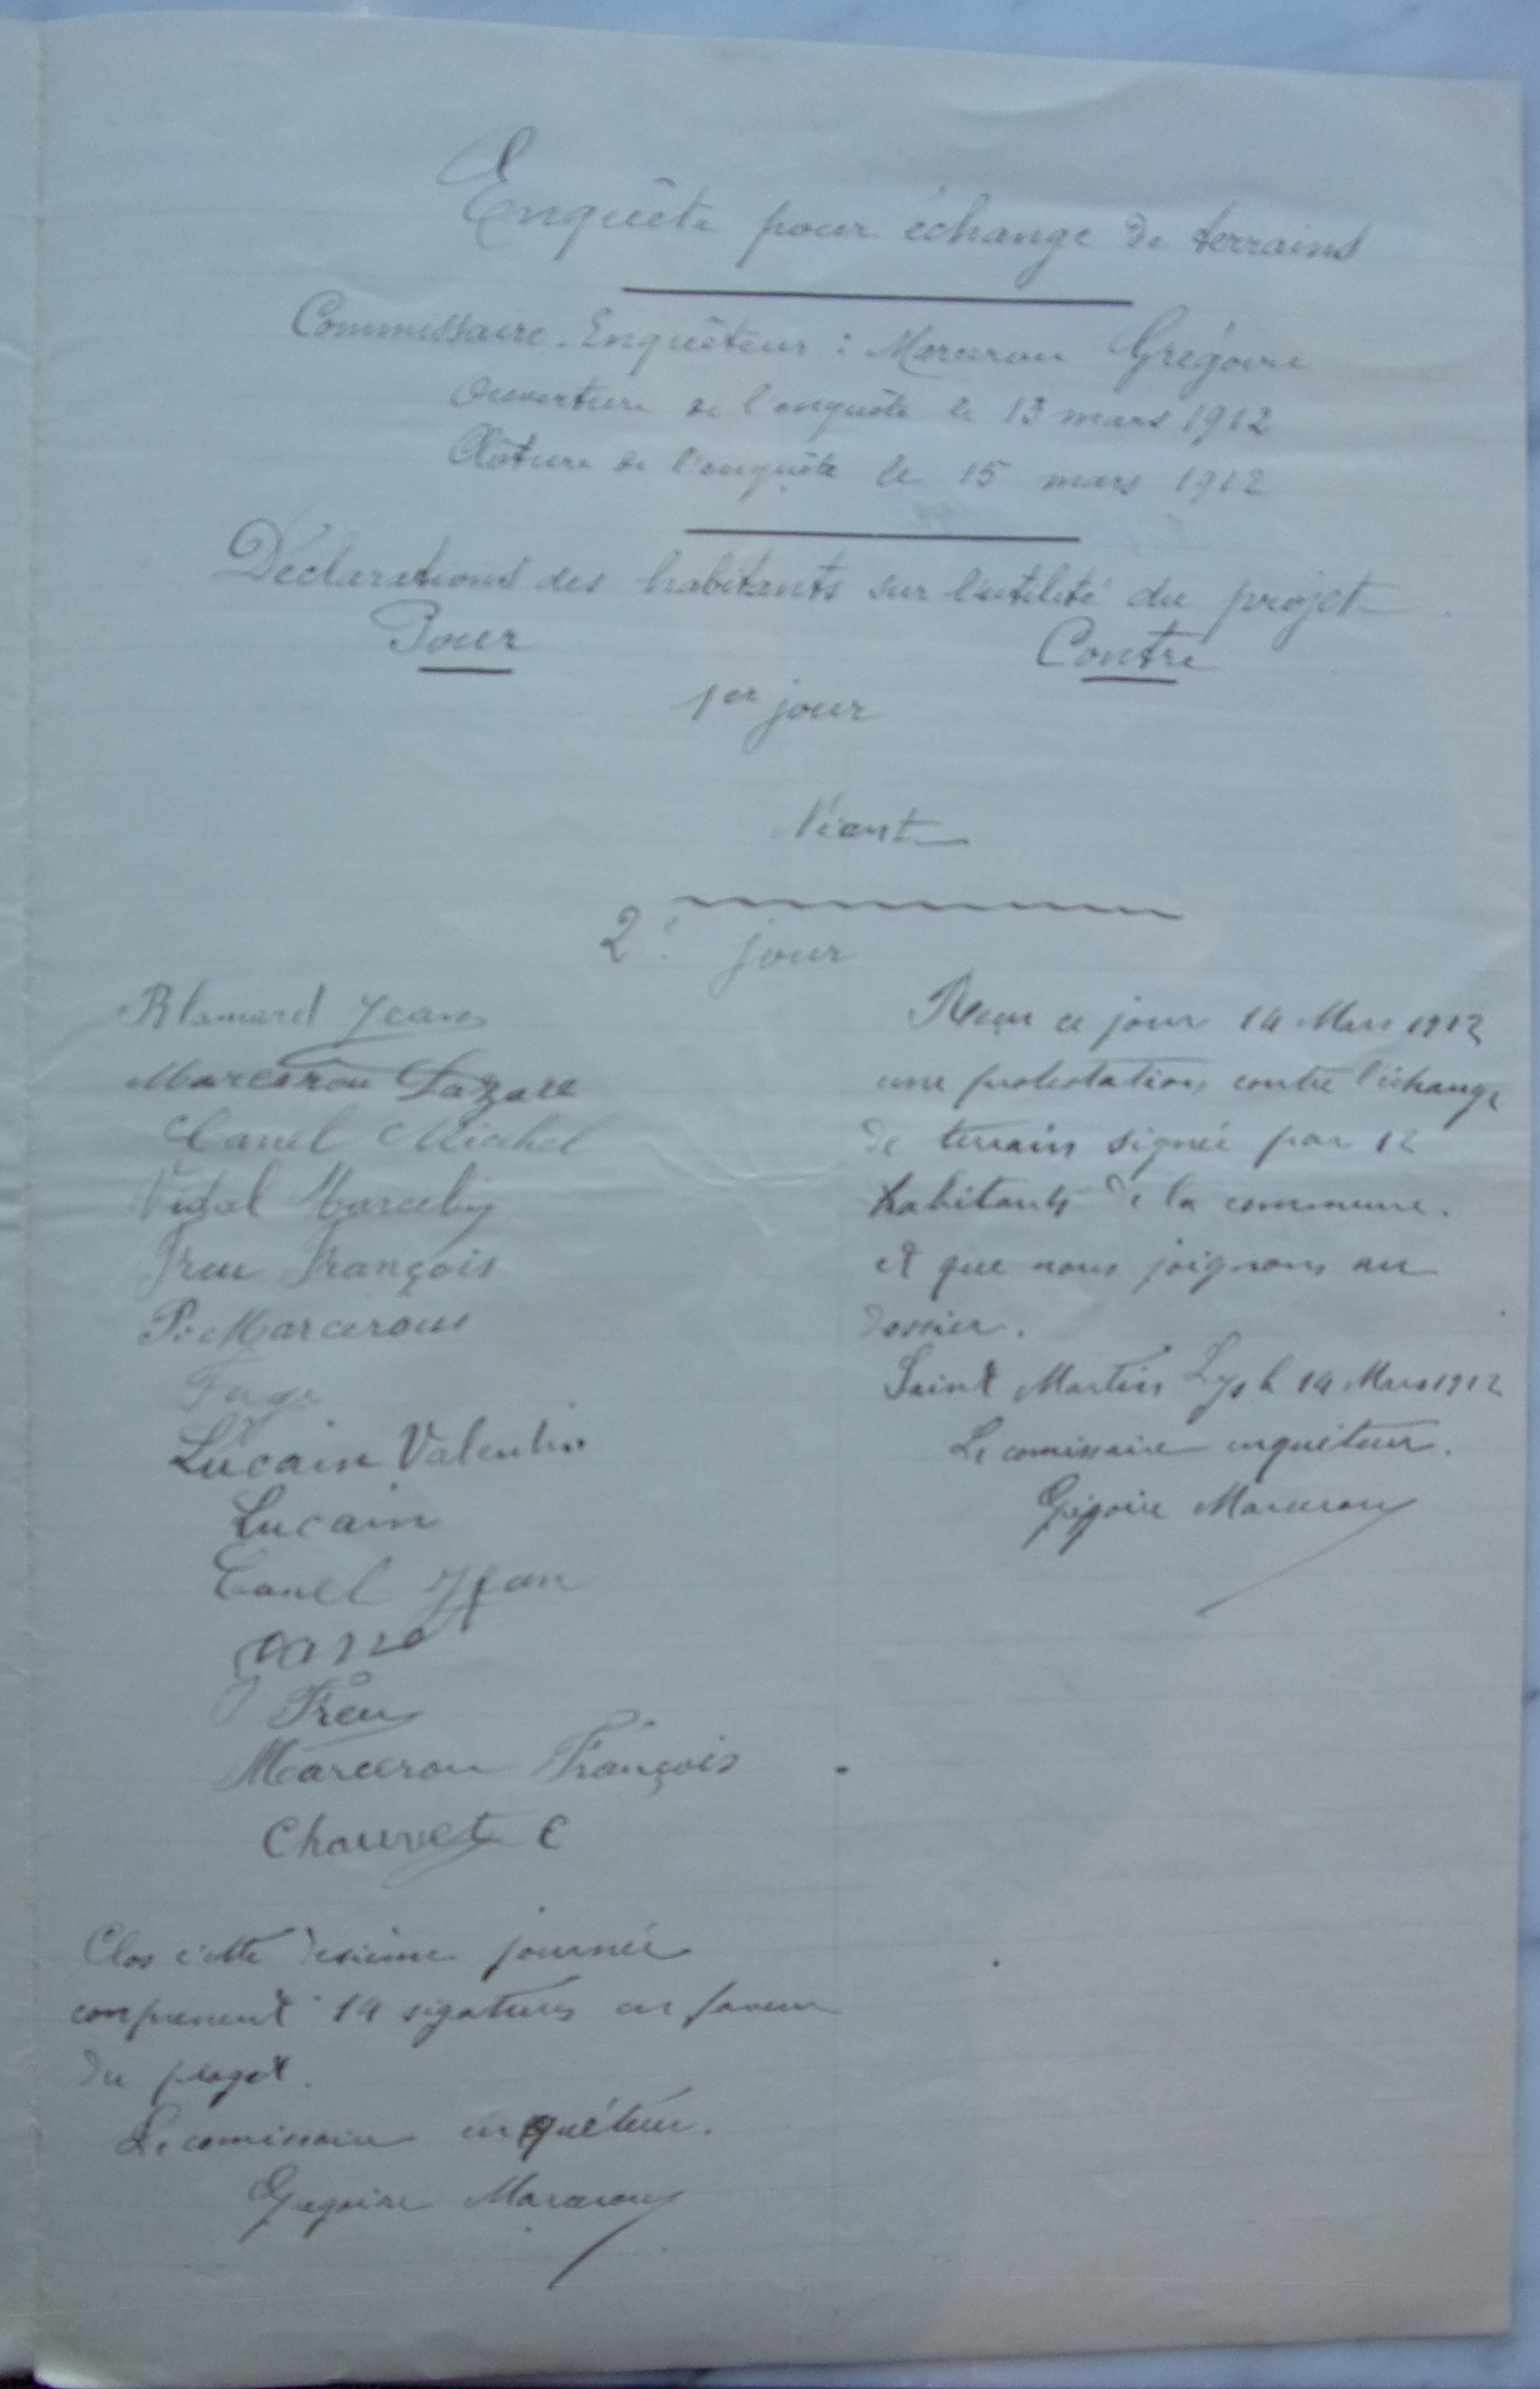 Enquête pour échange de terrains
Commissaire-Enquêteur : Marceron Grégoire
Ouverture de l'enquête le 13 mars 1912
Clôture de l'enquête le 15 mars 1912
Déclarations des habitants sur l'utilité du projet
Pour Contre
1er jour
Néant
2e jour
Blamard Jean
Marceron Lazare
Canel Michel
Vidal Marcelin
Freu François
P. Marcerou
Lucain Valentin
Lucain
Canel Jean
Freu
Marceron François
Chauvet C
Clos cette dexième journée
comprenent 14 sigatures en faveur
du proget.
Le comissaire enquêteur.
Grégoire Marceron
Reçu ce jour 14 Mars 1912
une protestation contre l'échange
de terrain signée par 12
habitants de la commune.
et que nous joignons au
dossier.
Saint Martin Lys le 14 Mars 1912
Le comissaire enquêteur.
Grégoire Marceron